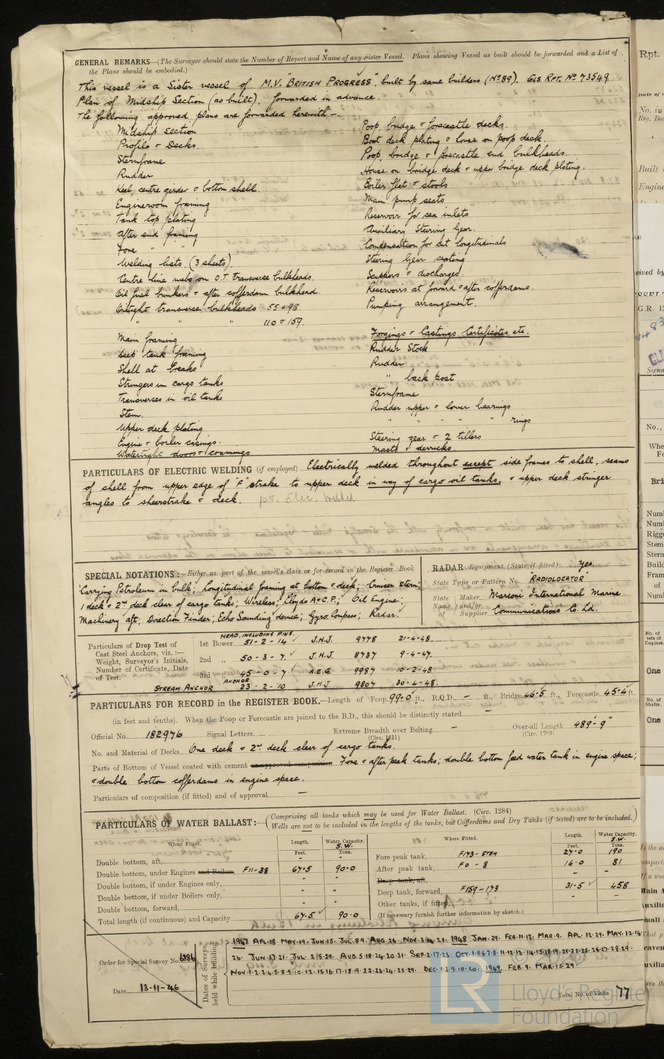 GENERAL REMARKS—(The Surveyor should state the Number of Report and Name of any Sister Vessel. Plans showing Vessel as built should be forwarded and a List of
the Plans should be embodied.)
This vessel is a Sister vessel of M.V. "BRITISH PROGRESS", built by same builders (No 89). Gls. Rpt. No 73549
Plan of Midship Section (as built). forwarded in advance.
The following approved plans are forwarded herewith -
Midship Section
Profile & Decks.
Sternframe
Rudder
Keel, centre girder & bottom shell.
Engineroom framing
Tank top plating
After end framing
Fore " "
Welding lists. (3 sheets)
Centre line webs on O.T. transverse bulkheads.
Oil fuel bunkers & after cofferdam bulkhead.
Oiltight transverse bulkheads 55 & 98
" " " 110 & 159.
Main framing
Deep tank framing
Shell at breaks
Stringers in cargo tanks
Transverses in oil tanks
Stem.
Upper deck plating
Engine & boiler casings.
Watertight doors & coamings
Poop, bridge & forecastle decks.
Boat deck plating & house on poop deck.
Poop bridge & forecastle end bulkheads.
House on bridge deck & upper bridge deck plating.
Boiler flat & stools
Main pump seats
Reservoir for sea inlets
Auxiliary Steering Gear.
Compensation for cut longitudinals
Steering Gear seating
Scuppers & discharges.
Reservoirs at forward & after cofferdams.
Pumping arrangement.
Forgings & Castings Certificates etc.
Rudder Stock
Rudder
" back post
Sternframe
Rudder upper & lower bearings
" " " " rings
Steering gear & 2 tillers
Masts & derricks
PARTICULARS OF ELECTRIC WELDING (if employed) Electrically welded throughout except side frames to shell, seams
of shell from upper edge of "F" strake to upper deck in way of cargo oil tanks, & upper deck stringer
angles to sheerstrake & deck. pt. Elec. Welded
SPECIAL NOTATIONS:— Either as part of the vessel's class or for record in the Register Book
"Carrying Petroleum in bulk; longitudinal framing at bottom & deck; Cruiser stern;
1 deck & 2nd deck clear of cargo tanks; Wireless; Lloyds A & C.P.; Oil Engine;
Machinery aft; Direction Finder; Echo Sounding device; Gyro Compass; Radar.
RADAR Equipment (State if fitted) Yes.
State Type or Pattern No. RADIOLOCATOR
State Name { Maker and/or of Supplier } Marconi International Marine
Communications Co. Ld.
Particulars of Drop Test of
Cast Steel Anchors, viz.:—
Weight, Surveyor's Initials,
Number of Certificate, Date
of Test.
HEAD, INCLUDING PINS.
1st Bower 51-2-14 J.H.J. 9778 21-4-48.
2nd " 50-3-7 J.H.J. 8737 9-4-47.
3rd " 45-0-7 A.E.G. 9987 10-2-48
STREAM ANCHOR ANCHOR 23-2-10 J.H.J. 9807 30-4-48.
PARTICULARS FOR RECORD in the REGISTER BOOK.—Length of Poop 99.0 ft., R.Q.D. — ft., Bridge 46.5 ft., Forecastle 45.4 ft.
(in feet and tenths). When the Poop or Forecastle are joined to the B.D., this should be distinctly stated —
Official No. 182976 Signal Letters Extreme Breadth over Belting (Circ. 1611) — Over-all Length (Circ. 1703) 489'-9"
No. and Material of Decks One deck & 2nd deck clear of cargo tanks.
Parts of Bottom of Vessel coated with cement or approved composition Fore & after peak tanks; double bottom feed water tank in engine space;
& double bottom cofferdams in engine space.
Particulars of composition (if fitted) and of approval —
PARTICULARS OF WATER BALLAST:— (Comprising all tanks which may be used for Water Ballast. (Circ. 1284)
Wells are not to be included in the lengths of the tanks, but Cofferdams and Dry Tanks (if fitted) are to be included.)
Where Fitted. Length. Feet. Water Capacity. S.W. Tons.
Double bottom, aft, - -
Double bottom, under Engines and Boilers F11-38 67.5 90.0
Double bottom, if under Engines only, - -
Double bottom, if under Boilers only, - -
Double bottom, forward, - -
Total length (if continuous) and Capacity 67.5 90.0
Where Fitted. Length. Feet. Water Capacity. S.W. Tons.
Fore peak tank, F173-STEM 27.0 190
After peak tank, F0-8 16.0 81
Deep tank, aft,
Deep tank, forward, F159-173 31.5 458
Other tanks, if fitted, - -
(If necessary furnish further information by sketch.)
Order for Special Survey No.
Date 13-11-46
Dates of Surveys held while building
Total No. of visits 77
LR
Lloyd's Register
Foundation
Rpt.
Built
Engine
G.R.
No.,
Whe
For
Bri
Num
Num
Rigge
Stem
Stern
Build
Fram
of
Num
One
One